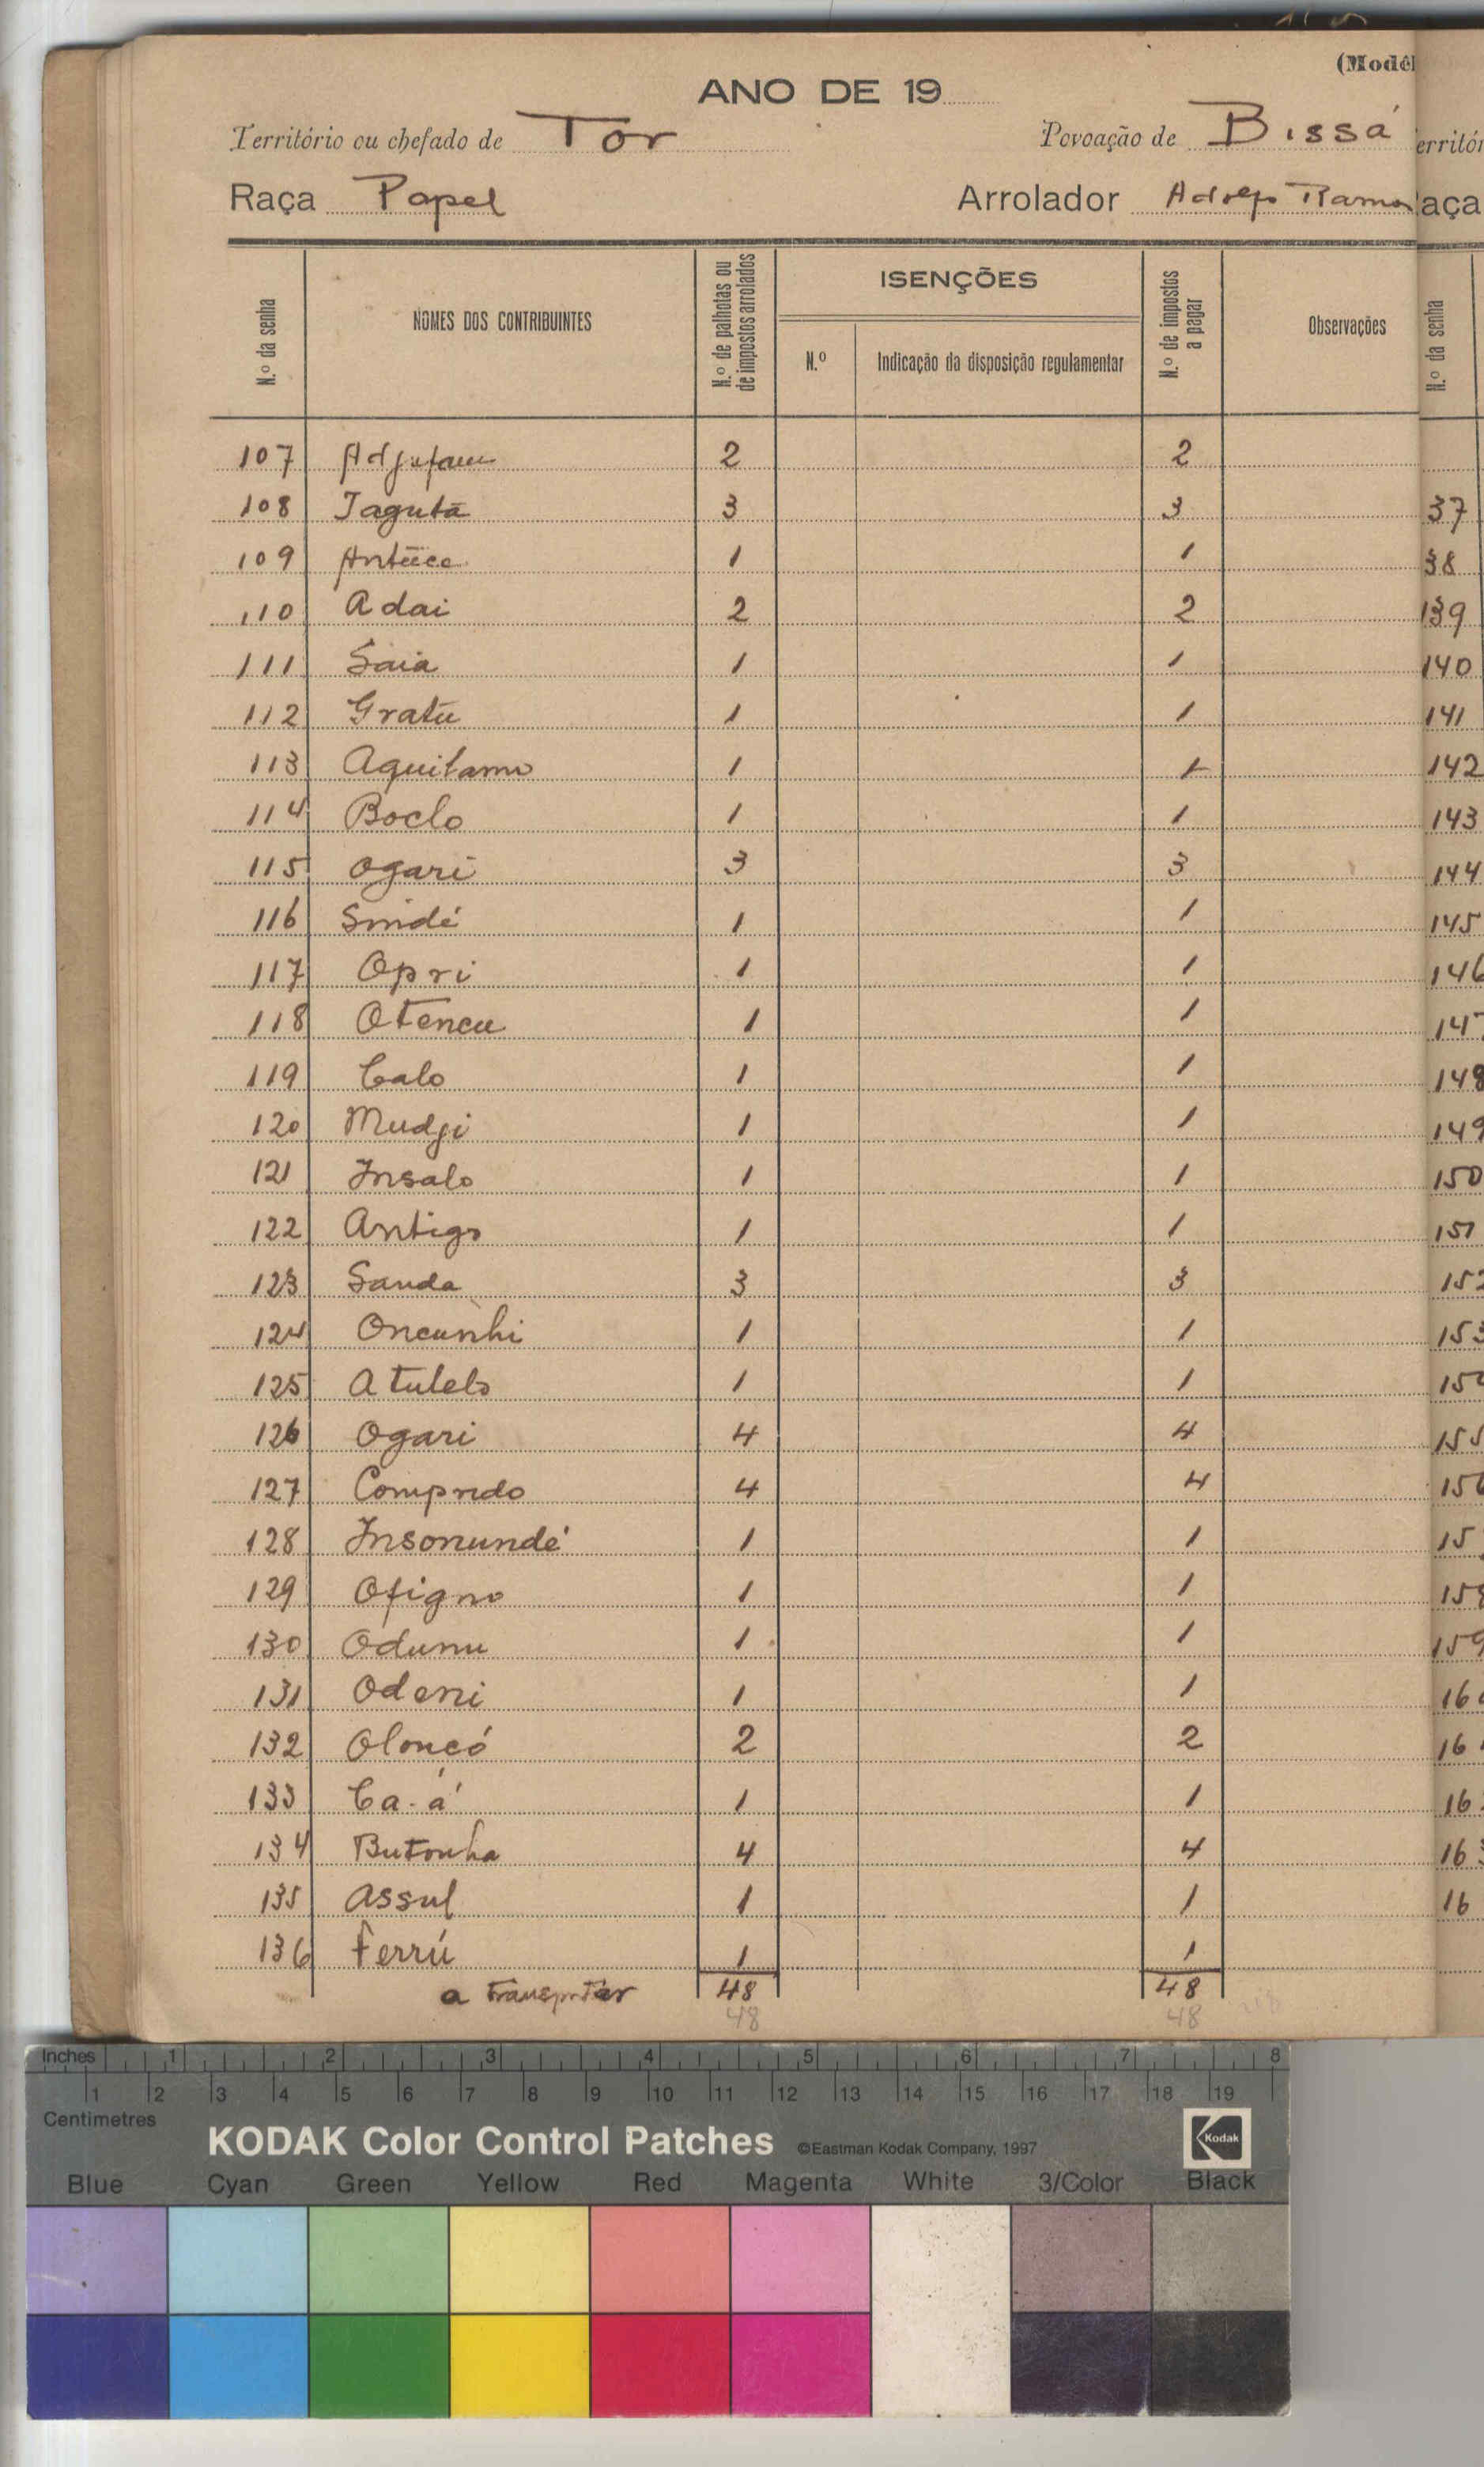 (Modêl
ANO DE 19
Território ou chefado de Tor Povoação de Bissá
Raça Papel Arrolador Adolfo Ramos
N.º da senha NOMES DOS CONTRIBUINTES N.º de palhotas ou de impostos arrolados ISENÇÕES N.º Indicação da disposição regulamentar N.º de impostos a pagar Observações
107 2 2
108 Tagutá 3 3
109 1 1
110 Adai 2 2
111 Saia 1 1
112 Gratu 1 1
113 Aquitamo 1 1
114 Boclo 1 1
115 Ogari 3 3
116 Sindé 1 1
117 Opri 1 1
118 Otencu 1 1
119 Calo 1 1
120 Mudji 1 1
121 Insalo 1 1
122 Antigo 1 1
123 Sanda 3 3
124 Oncunhi 1 1
125 Atulelo 1 1
126 Ogari 4 4
127 Comprido 4 4
128 Insonundé 1 1
129 Ofigno 1 1
130 Odunu 1 1
131 Odeni 1 1
132 Oloncó 2 2
133 Ca-á 1 1
134 Butonha 4 4
135 Assul 1 1
136 Ferrú 1 1
a transportar 48 48
48 48
erritór
aça
N.º da senha
37
38
139
140
141
142
143
144
145
146
147
148
149
150
151
152
153
15
155
156
15
158
159
16
16
16
163
16
Inches 1 2 3 4 5 6 7 8
1 2 3 4 5 6 7 8 9 10 11 12 13 14 15 16 17 18 19
Centimetres
KODAK Color Control Patches ©Eastman Kodak Company, 1997 Kodak
Blue Cyan Green Yellow Red Magenta White 3/Color Black